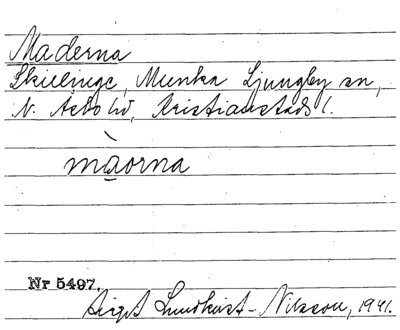 Maderna
Skillinge, Munka Ljungby sn,
N. Åsbo hd, Kristianstads l.
mạ̊orna
Nr 5497.
Birgit Lundkvist-Nilsson, 1941.